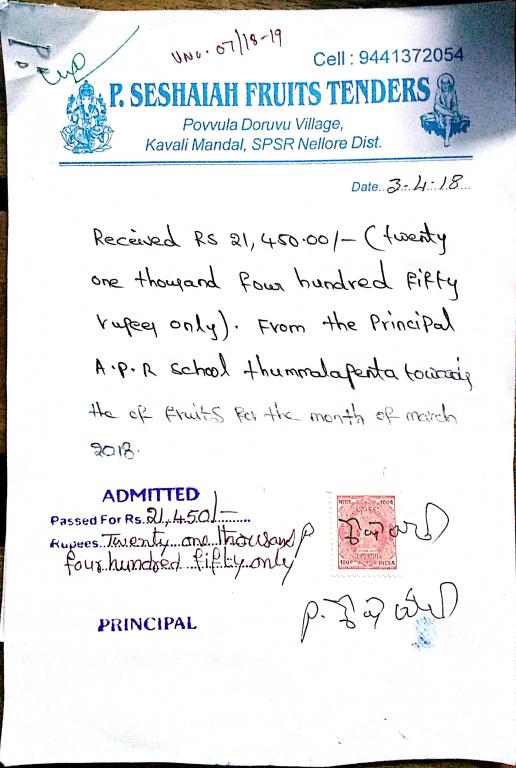 VNo. 07/18-19
Cell : 9441372054
P. SESHAIAH FRUITS TENDERS
Povvula Doruvu Village,
Kavali Mandal, SPSR Nellore Dist.
Date. 3-4-18
Received RS 21,450.00/- (twenty
one thousand four hundred fifty
rupees only). From the Principal
A.P.R school thummalapenta towards
the of fruits for the month of march
2018.
ADMITTED
Passed For Rs. 21,450/-
Rupees Twenty one thousand
four hundred fifty only
भारत 100प
INDIA
PRINCIPAL